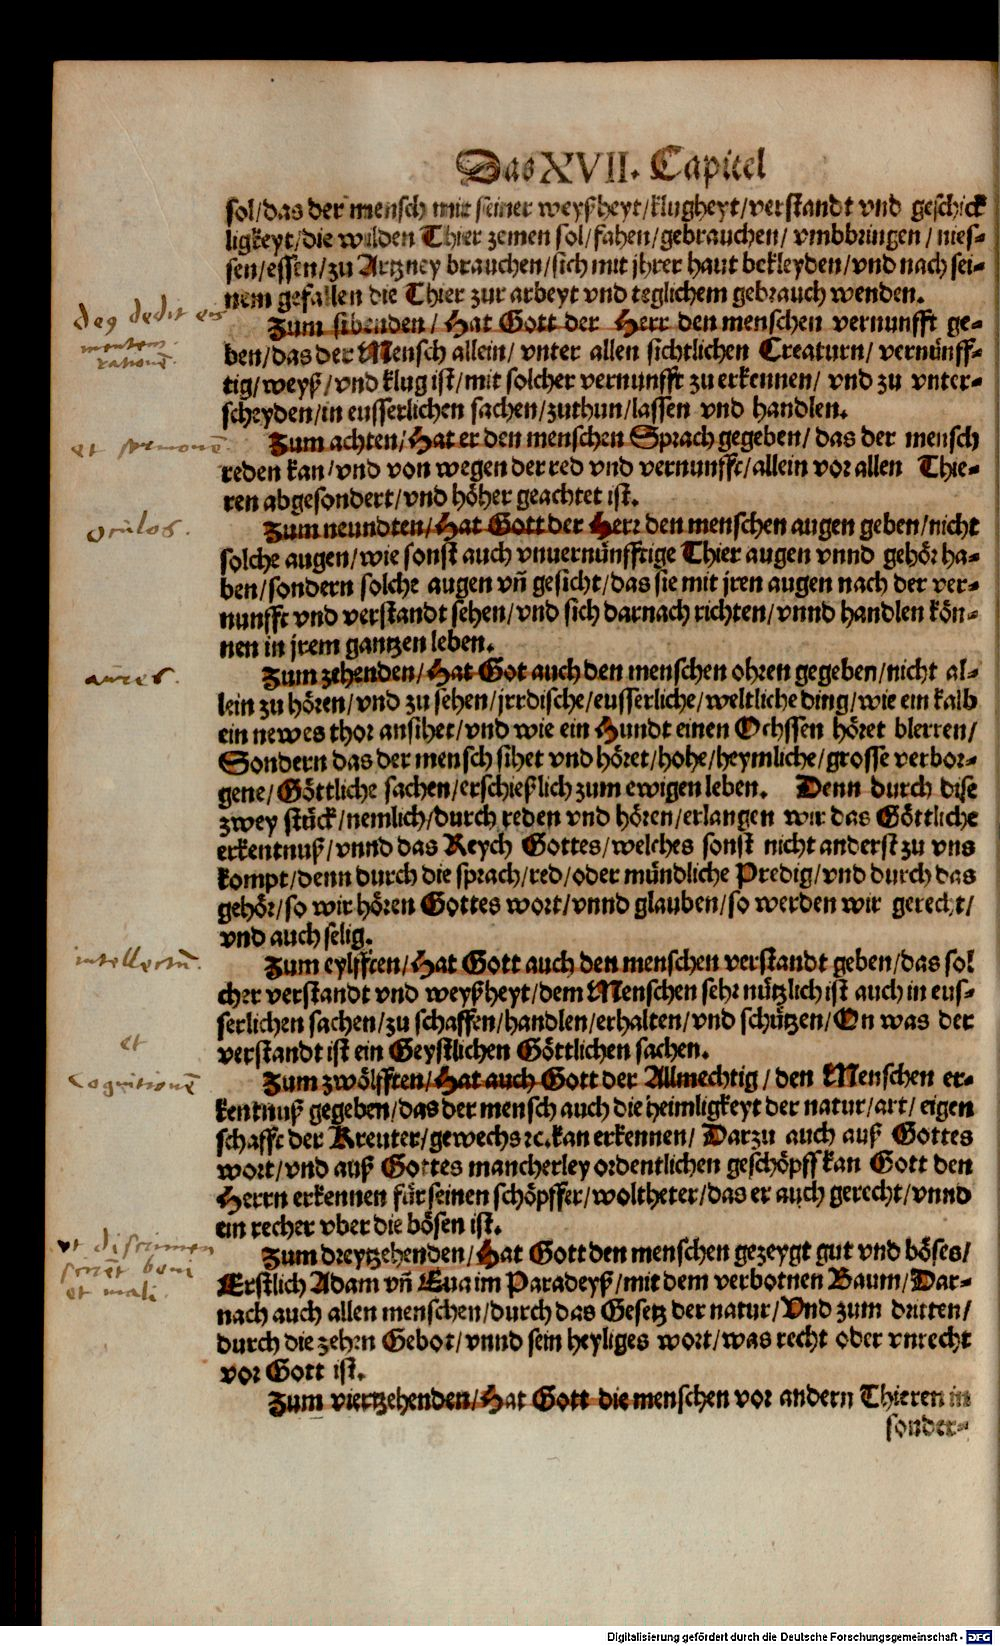 Das XVII. Capitel
sol/das der mensch mit seiner weyßheyt/klugheyt/verstandt vnd geschick
ligkeyt/die wilden Thier zemen sol/fahen/gebrauchen/ vmbbringen / nies-
sen/essen/zu Artzney brauchen/sich mit jhrer haut bekleyden/vnd nach sei-
nem gefallen die Thier zur arbeyt vnd teglichem gebrauch wenden.
deg dedit eis
mentem.
rationē.
Zum sibenden / Hat Gott der Herr den menschen vernunfft ge-
ben/das der Mensch allein/ vnter allen sichtlichen Creaturn/ vernünff-
tig/weyß/vnd klug ist/mit solcher vernunfft zu erkennen/ vnd zu vnter-
scheyden/in eusserlichen sachen/zuthun/lassen vnd handlen.
et sermonē
Zum achten/Hat er den menschen Sprach gegeben/das der mensch
reden kan/vnd von wegen der red vnd vernunfft/allein vor allen Thie-
ren abgesondert/vnd höher geachtet ist.
oculos.
Zum neundten/Hat Gott der Herr den menschen augen geben/nicht
solche augen/wie sonst auch vnuernünfftige Thier augen vnnd gehör ha-
ben/sondern solche augen vñ gesicht/das sie mit jren augen nach der ver-
nunfft vnd verstandt sehen/vnd sich darnach richten/vnnd handlen kön-
nen in jrem gantzen leben.
aures.
Zum zehenden/Hat Got auch den menschen ohren gegeben/nicht al-
lein zu hören/vnd zu sehen/jrrdische/eusserliche/weltliche ding/wie ein kalb
ein newes thor ansihet/vnd wie ein Hundt einen Ochssen höret blerren/
Sondern das der mensch sihet vnd höret/hohe/heymliche/grosse verbor-
gene/Göttliche sachen/erschießlich zum ewigen leben. Denn durch dise
zwey stück/nemlich/durch reden vnd hören/erlangen wir das Göttliche
erkentnuß/vnnd das Reych Gottes/welches sonst nicht anderst zu vns
kompt/denn durch die sprach/red/oder mündliche Predig/vnd durch das
gehör/so wir hören Gottes wort/vnnd glauben/so werden wir gerecht/
vnd auch selig.
intellectū.
Zum eylfften/Hat Gott auch den menschen verstandt geben/das sol
cher verstandt vnd weyßheyt/dem Menschen sehr nützlich ist auch in eus-
serlichen sachen/zu schaffen/handlen/erhalten/vnd schützen/On was der
verstandt ist ein Geystlichen Göttlichen sachen.
et
Cognitionē
Zum zwölfften/Hat auch Gott der Allmechtig/den Menschen er-
kentnuß gegeben/das der mensch auch die heimligkeyt der natur/art/ eigen
schafft der Kreuter/gewechs ꝛc.kan erkennen/ Darzu auch auß Gottes
wort/vnd auß Gottes mancherley ordentlichen geschöpff kan Gott den
Herrn erkennen für seinen schöpffer/woltheter/das er auch gerecht/vnnd
ein recher vber die bösen ist.
vt discrimen
scirēt boni
et mali.
Zum dreytzehenden/Hat Gott den menschen gezeygt gut vnd böses/
Erstlich Adam vñ Eua im Paradeyß/mit dem verbotnen Baum/Dar-
nach auch allen menschen/durch das Gesetz der natur/Vnd zum dritten/
durch die zehen Gebot/vnnd sein heyliges wort/was recht oder vnrecht
vor Gott ist.
Zum viertzehenden/Hat Gott die menschen vor andern Thieren in
sonder-
Digitalisierung gefördert durch die Deutsche Forschungsgemeinschaft - DFG